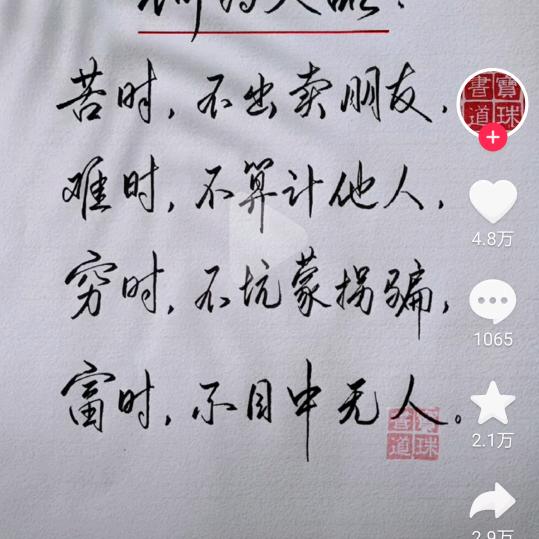 苦时，不出卖朋友，
难时，不算计他人，
穷时，不坑蒙拐骗，
富时，不目中无人。
寶珠書道
寶珠書道
4.8万
1065
2.1万
2.9万